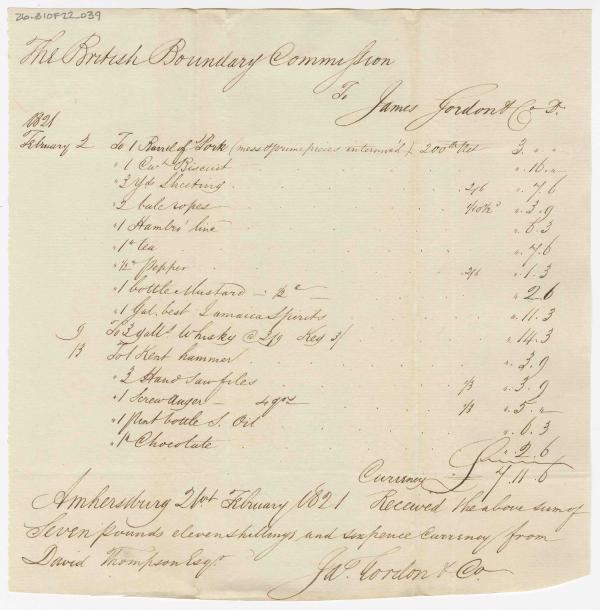 26-B10F22_039
The British Boundary Commission
To James Gordon & Co Dr.
1821
February 2 To 1 Barrel of Pork (mess & prime pieces intermix'd) 200 lb Net 3. " "
" 1 Cwt. Biscuit ". 16. "
" 3 Yds Sheeting 2/6 ". 7. 6
" 2 bale ropes 1/10½ ". 3. 9
" 1 Hambro' line ". 6. 3
" 1 lb tea ". 7. 6
" ½ lb Pepper 2/6 ". 1. 3
" 1 bottle Mustard ". 2 6
" 1 Gal. best Jamaica Spirits ". 11. 3
9 To 3 galls. Whisky @ 3/9 Keg 3/ ". 14. 3
13 To 1 Kent hammer ". 3. 9
" 3 Hand Saw files 1/3 ". 3. 9
" 1 Screw Auger – 4 qrs 1/3 ". 5. "
" 1 Pint bottle S. Oil ". 6. 3
" 1 lb Chocolate ". 2. 6
Currency £ 7. 11. 6
Amherstburg 21st February 1821 Received the above sum of
Seven pounds eleven shillings and sixpence Currency from
David Thompson Esqr.
Jas. Gordon & Co.